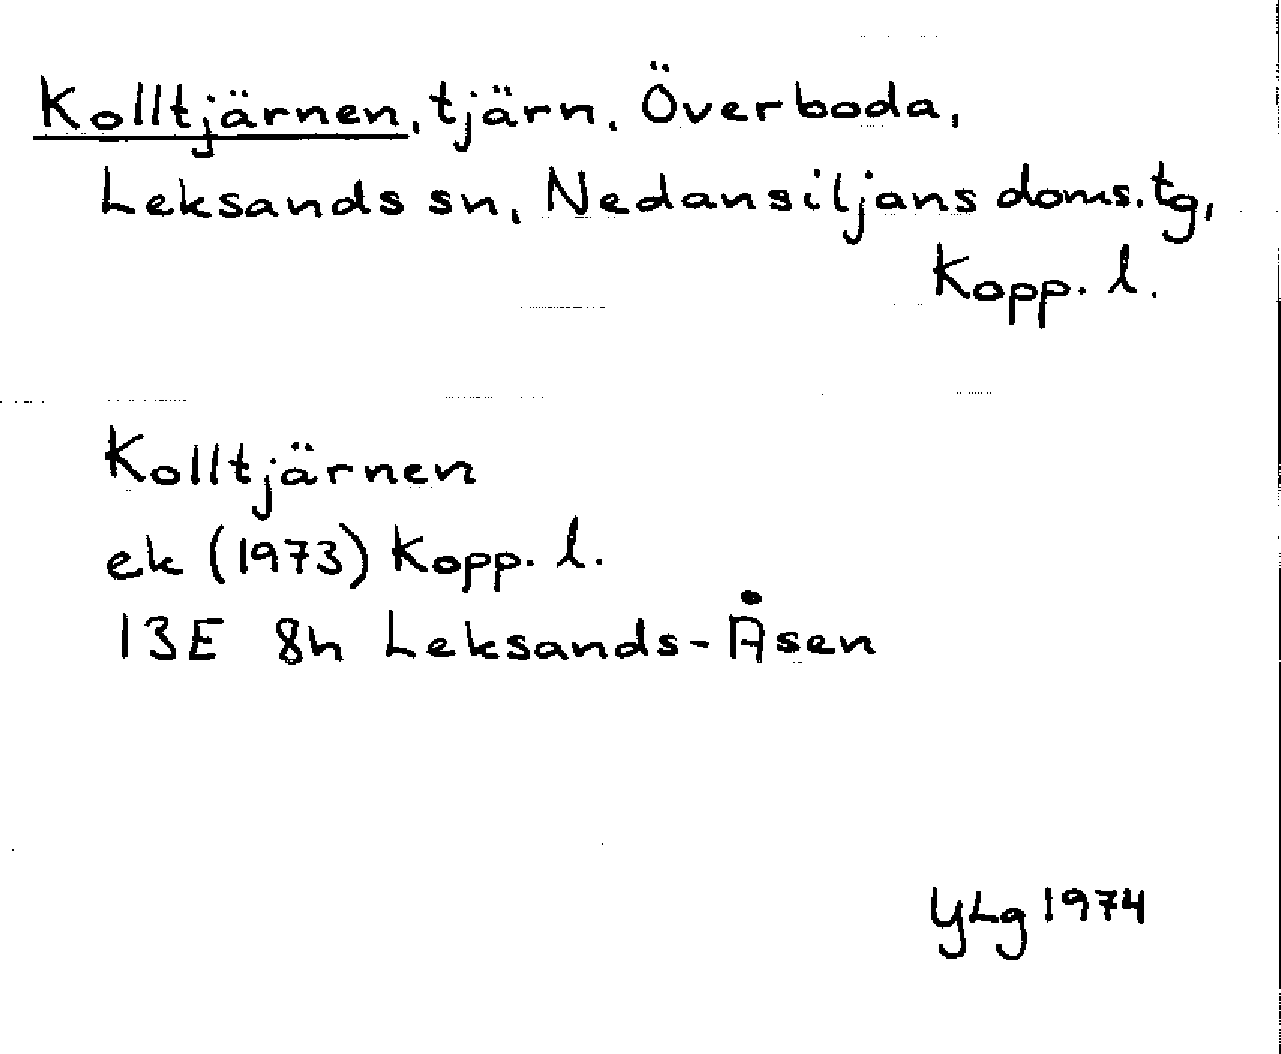 Kolltjärnen, tjärn, Överboda,
Leksands sn, Nedansiljans doms.tg,
Kopp. l.
Kolltjärnen
ek (1973) Kopp. l.
13E 8h Leksands-Åsen
YLg 1974